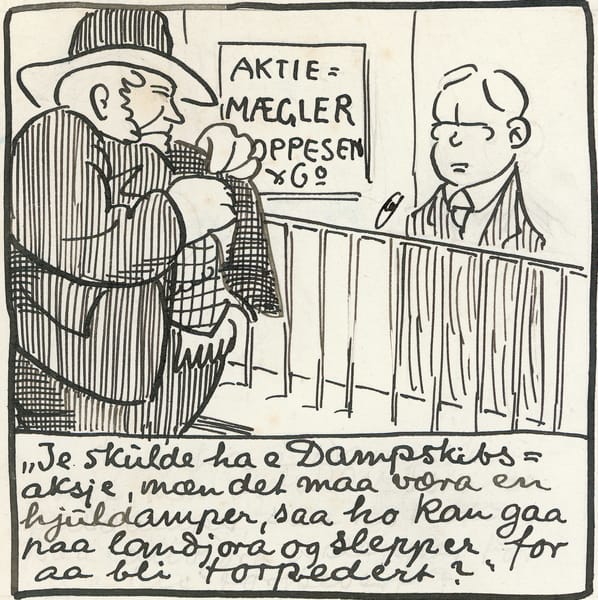 AKTIE=
MÆGLER
OPPESEN
& Co
„Je skulde ha e Dampskibs=
aksje, mæn det maa væra en
hjuldamper, saa ho kan gaa
paa landjora og slepper for
aa bli torpedert?"